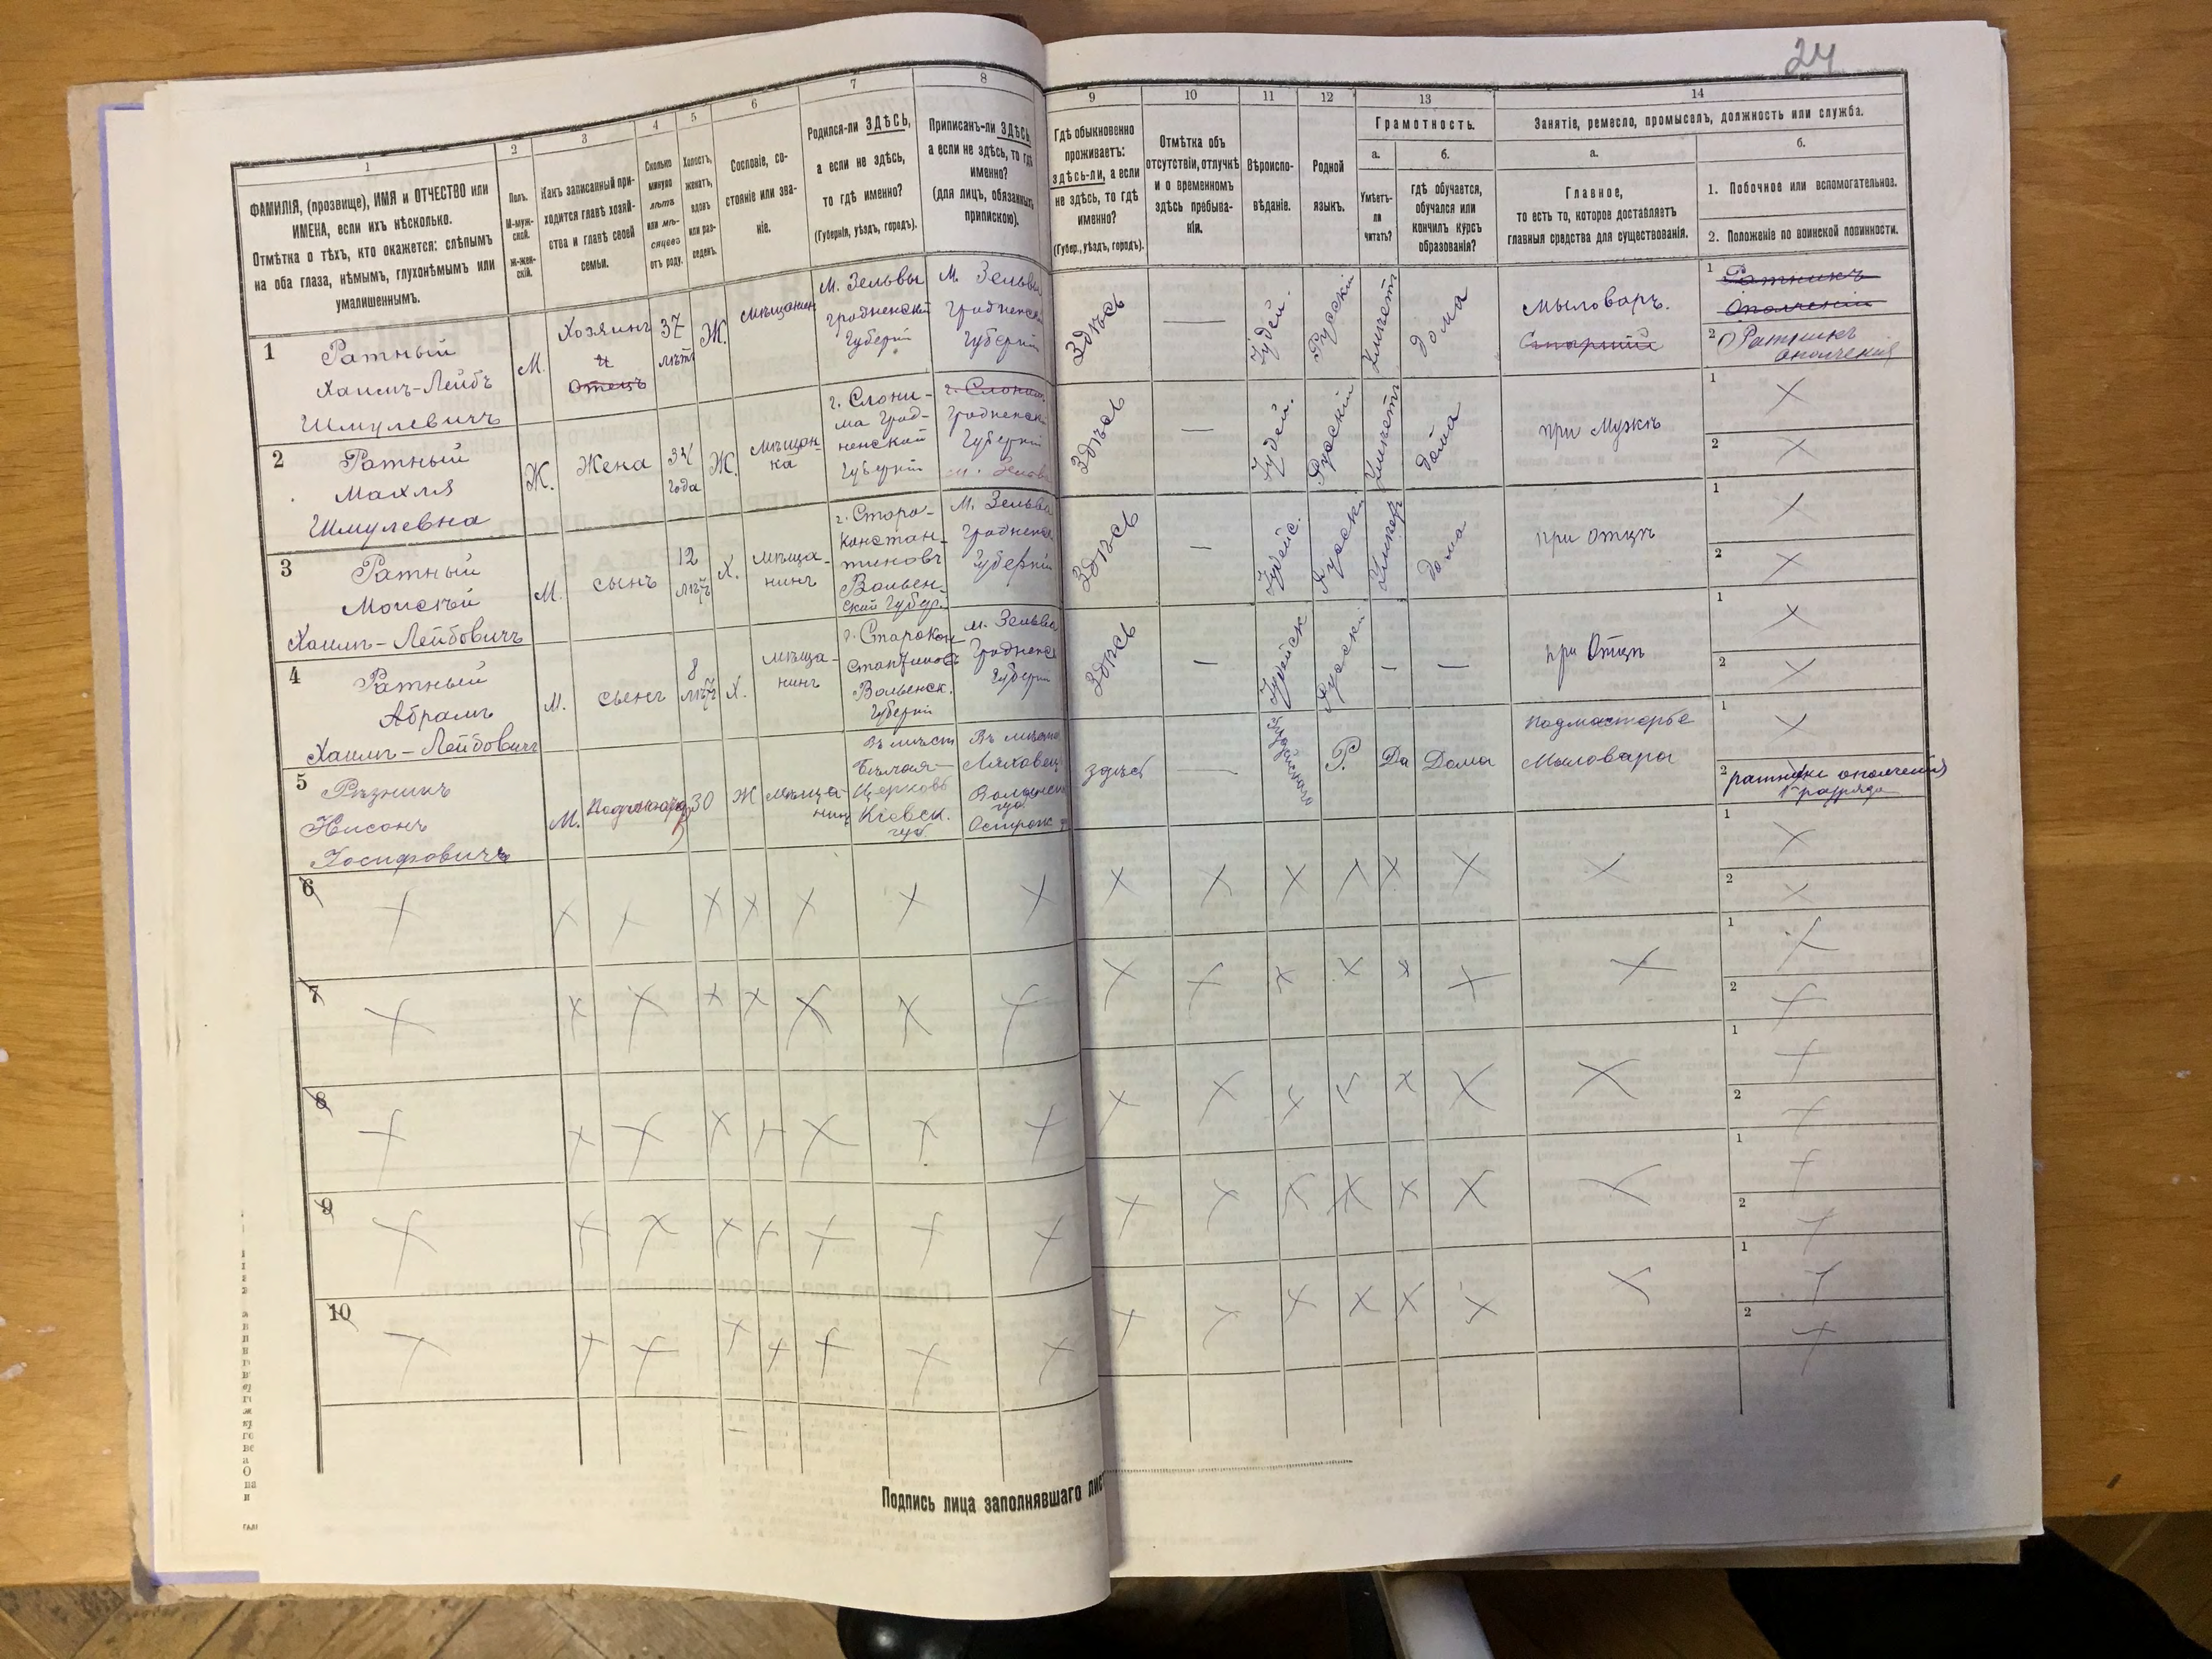 24
1
2
3
4
5
6
7
8
9
10
11
12
13
14
ФАМИЛІЯ, (прозвище), ИМЯ и ОТЧЕСТВО или
ИМЕНА, если ихъ нѣсколько.
Отмѣтка о тѣхъ, кто окажется: слѣпымъ
на оба глаза, нѣмымъ, глухонѣмымъ или
умалишеннымъ.
Полъ.
М-муж-
ской.
Ж-жен-
скій.
Какъ записанный при-
ходится главѣ хозяй-
ства и главѣ своей
семьи.
Сколько
минуло
лѣтъ
или мѣ-
сяцевъ
отъ роду.
Холостъ,
женатъ,
вдовъ
или раз-
веденъ.
Сословіе, со-
стояніе или зва-
ніе.
Родился-ли ЗДѢСЬ,
а если не здѣсь,
то гдѣ именно?
(Губернія, уѣздъ, городъ).
Приписанъ-ли ЗДѢСЬ,
а если не здѣсь, то гдѣ
именно?
(для лицъ, обязанныхъ
припискою).
Гдѣ обыкновенно
проживаетъ:
здѣсь-ли, а если
не здѣсь, то гдѣ
именно?
(Губер., уѣздъ, городъ).
Отмѣтка объ
отсутствіи, отлучкѣ
и о временномъ
здѣсь пребыва-
ніи.
Вѣроиспо-
вѣданіе.
Родной
языкъ.
Грамотность.
а.
Умѣетъ-
ли
читать?
б.
гдѣ обучается,
обучался или
кончилъ курсъ
образованія?
Занятіе, ремесло, промыселъ, должность или служба.
а.
Главное,
то есть то, которое доставляетъ
главныя средства для существованія.
б.
1. Побочное или вспомогательное.
2. Положеніе по воинской повинности.
1
Ратный
Хаимъ-Лейбъ
Шмулевичъ
М.
Хозяинъ
и
Отецъ
37
лѣтъ
Ж.
мѣщанинъ
М. Зельвы
Гродненской
Губерніи
М. Зельвы
Гродненск
Губерніи
Здѣсь
—
Іудей.
Русскій
Умѣетъ
дома
Мыловаръ.
1 Ратникъ
Ополченія
2 Ратникъ
ополченія
2
Ратный
Махля
Шмулевна
Ж.
Жена
34
года
Ж.
Мѣщан-
ка
г. Слони-
ма Грод-
ненской
Губерніи
г. Слоним
Гродненск
Губерніи
м. Зельва
Здѣсь
—
Іудей.
Русскій
Умѣетъ
дома
при Мужѣ
1 ×
2 ×
3
Ратный
Моисѣй
Хаимъ-Лейбовичъ
М.
сынъ
12
лѣтъ
Х.
мѣща-
нинъ
г. Старо-
констан-
тиновъ
Волын-
ской Губер.
М. Зельва
Гродненск
Губерніи
Здѣсь
—
Іудейс.
Русскі
дома
при Отцѣ
1 ×
2 ×
4
Ратный
Абрамъ
Хаимъ-Лейбович
М.
сынъ
8
лѣтъ
Х.
мѣща-
нинъ
г. Старокон
стантиновъ
Волынск.
Губерніи
м. Зельва
Гродненс
Губерніи
Здѣсь
—
Іудейск
Русскі
—
—
при Отцѣ
1 ×
2 ×
5
Рѣзникъ
Нисонъ
Іосифовичъ
М.
30
Ж
мѣща-
нинъ
Въ мѣст
Бѣлая-
Церковь
Кіевск.
губ.
Въ мѣст
Ляховец
Волынск
губ
Острож у
здѣсь
—
Іудейского
Р.
Да
Дома
Подмастерье
Мыловара
1 ×
2 ратникъ ополченія
1 разряда
6
7
8
9
10
Подпись лица заполнявшаго лис